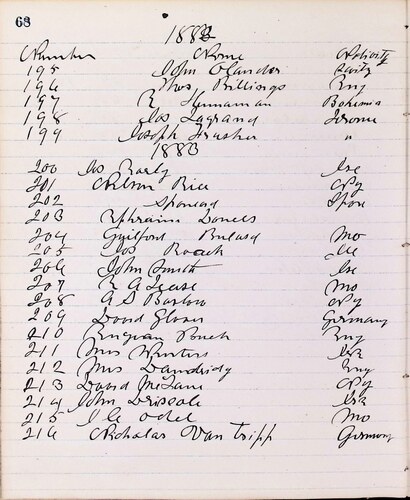 68
1882
Number Name Nativity
195 John Olander
196 Thos Billings Eng
197 R Hynaman Bohemia
198 Jos Lagrand
199 Joseph Frasher "
1883
200 Jos Early Ire
201 Nelson Rice NY
202
203 Ephraim Daniels
204 Guilford Bulard Mo
205 Jos Roach
206 John Smith Ire
207 R A Lease Mo
208 A S Barlow NY
209 David Sloan Germany
210 Buck Eng
211 Mrs Winters Ire
212 Mrs Dandridg Eng
213 David McLane NY
214 John Driscole Ire
215 Odel Mo
216 Nicholas Van Tripp Germany